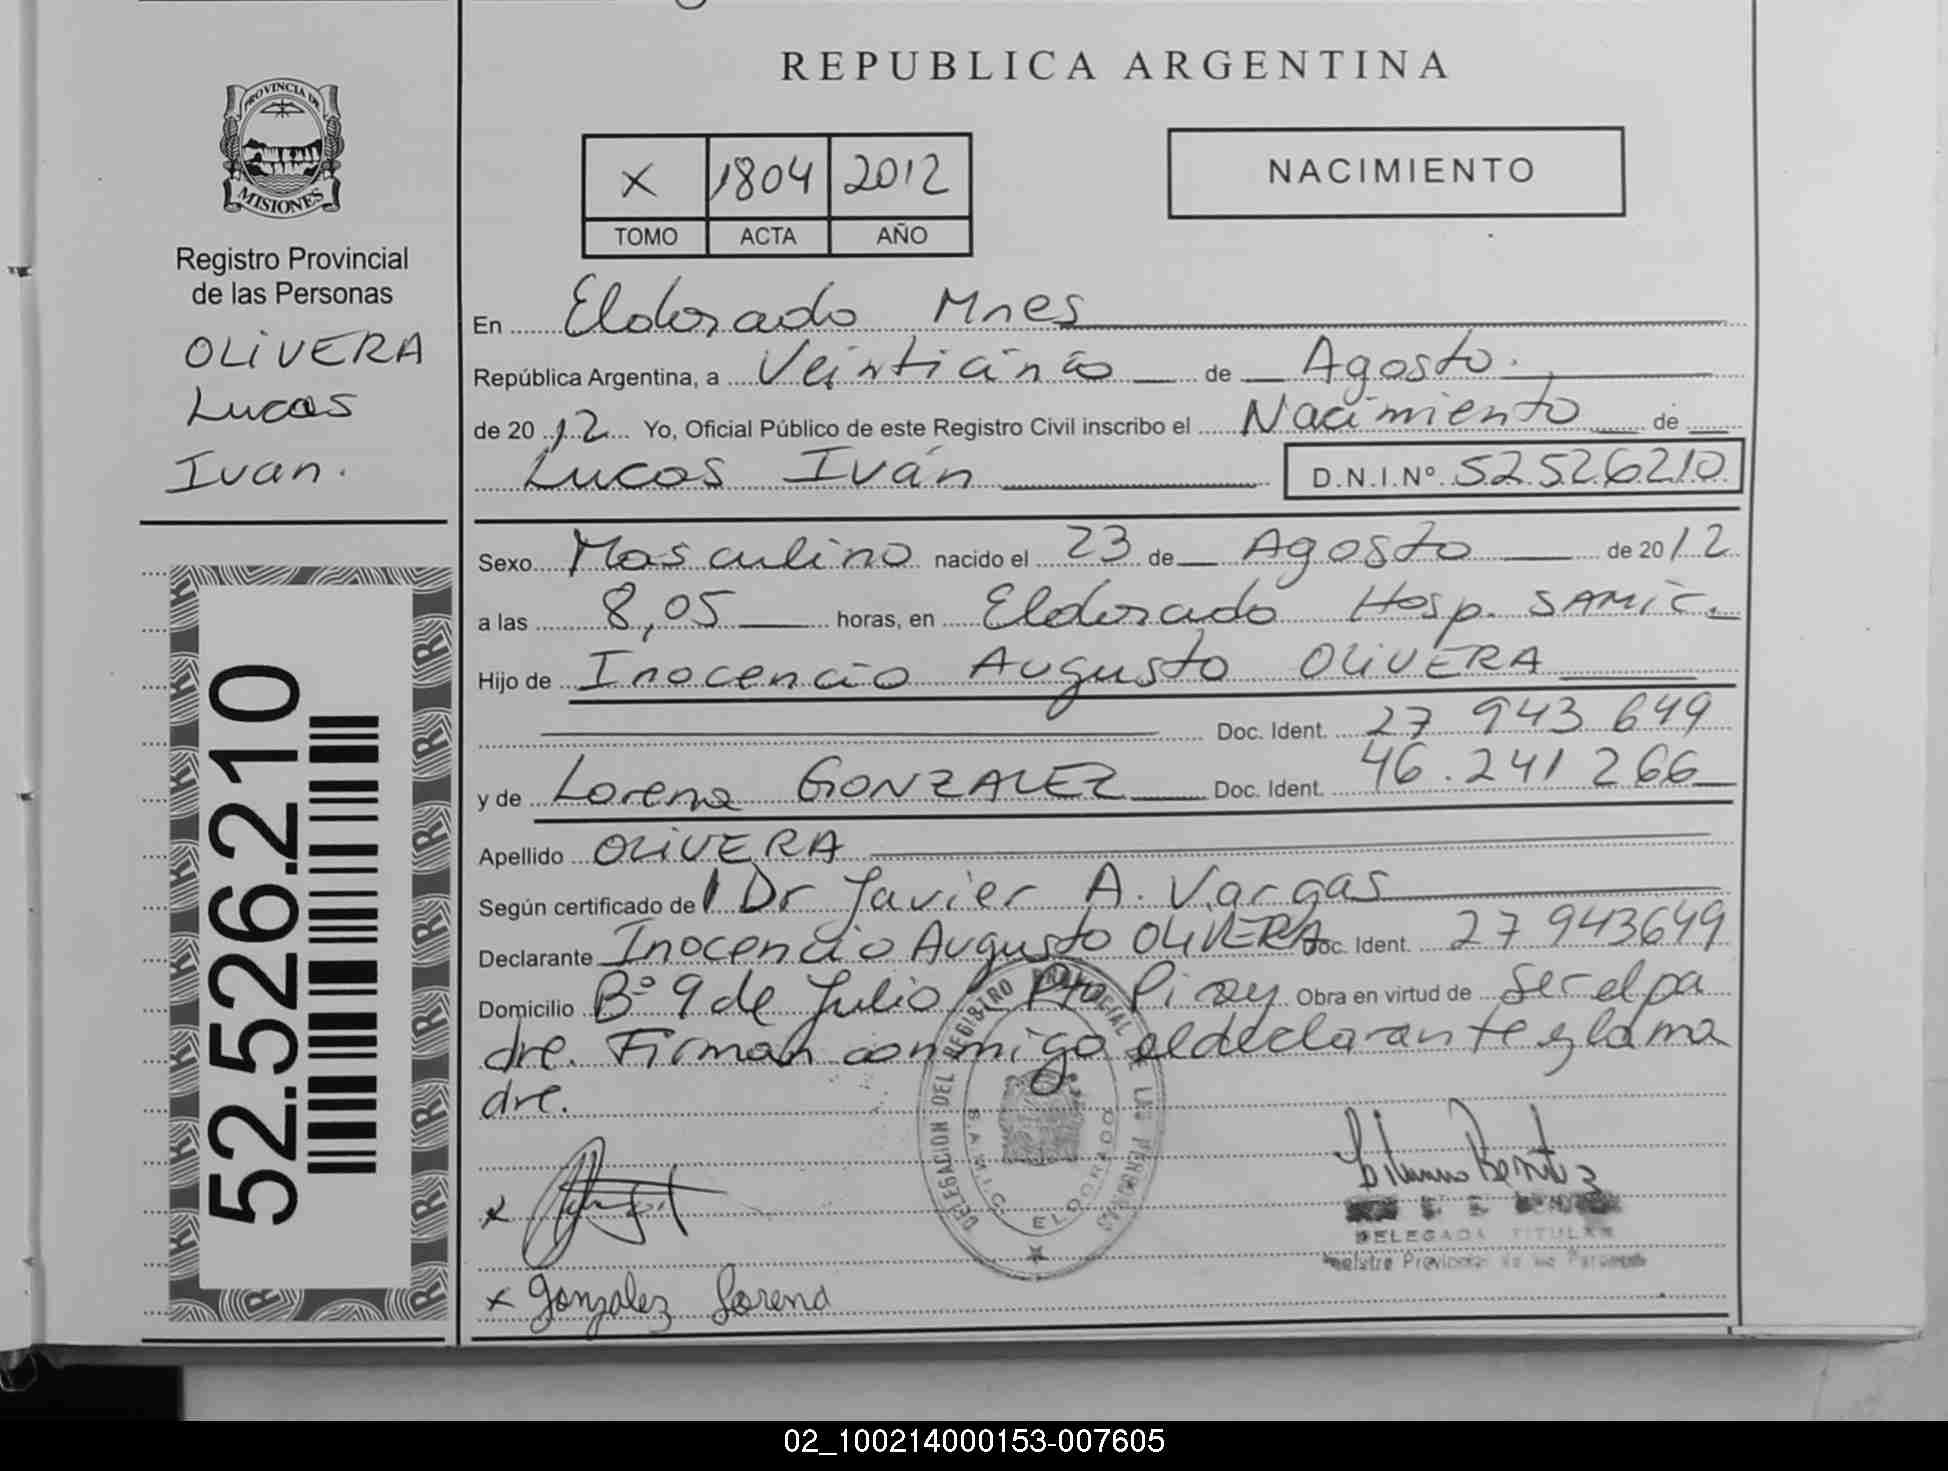 PROVINCIA DE
MISIONES
Registro Provincial
de las Personas
OLIVERA
Lucas
Ivan.
52.526.210
REPUBLICA ARGENTINA
X 1804 2012
TOMO ACTA AÑO
NACIMIENTO
En Eldorado Mnes
República Argentina, a Veinticinco de Agosto.
de 2012 Yo, Oficial Público de este Registro Civil inscribo el Nacimiento de
Lucas Iván D.N.I.Nº 52526210
Sexo Masculino nacido el 23 de Agosto de 2012
a las 8,05 horas, en Eldorado Hosp. SAMIC.
Hijo de Inocencio Augusto OLIVERA
Doc. Ident. 27 943 649
y de Lorena GONZALEZ Doc. Ident. 46.241 266
Apellido OLIVERA
Según certificado de Dr Javier A. Vargas
Declarante Inocencio Augusto OLIVERA Doc. Ident. 27 943649
Domicilio Bº 9 de Julio Pto Piray Obra en virtud de ser el pa
dre. Firman conmigo el declarante y la ma
dre.
DELEGACION DEL REGISTRO PROVINCIAL DE LAS PERSONAS
S.A.M.I.C. ELDORADO
x
DELEGADA TITULAR
Registro Provincial de las Personas
x Gonzalez Lorena
02_100214000153-007605